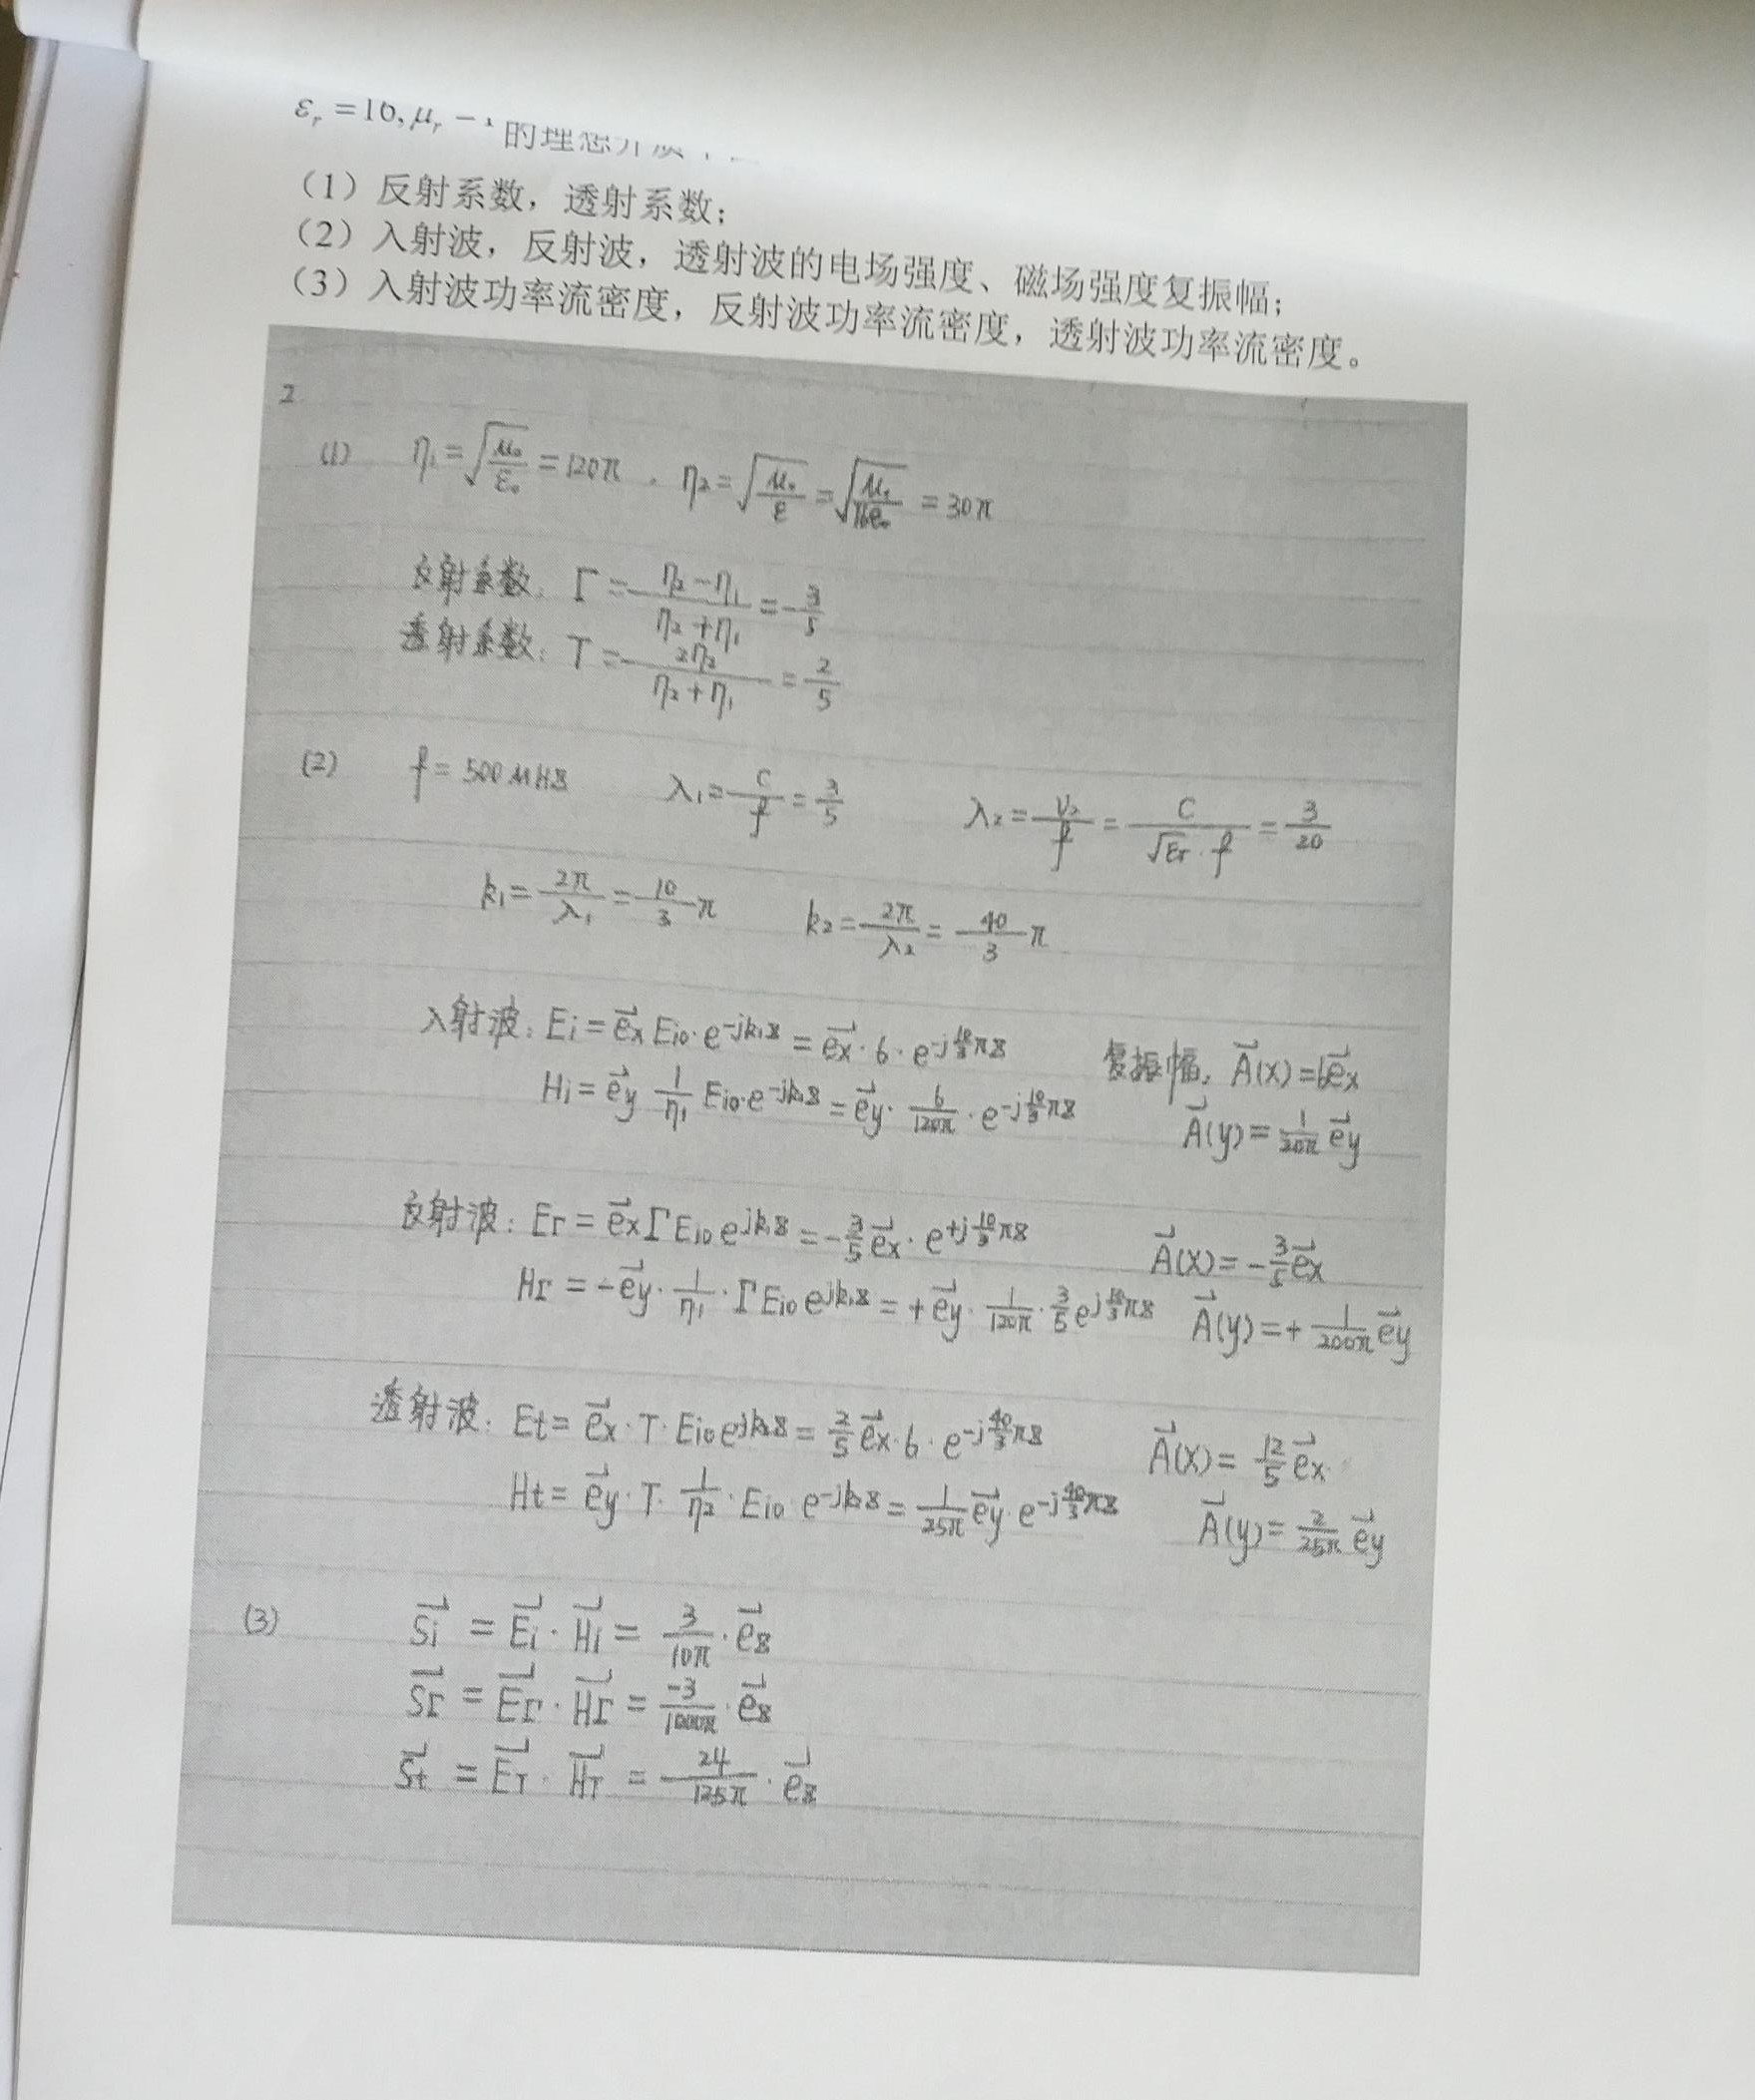 εr = 16, μr
的理想介质
（1）反射系数，透射系数；
（2）入射波，反射波，透射波的电场强度、磁场强度复振幅；
（3）入射波功率流密度，反射波功率流密度，透射波功率流密度。
2
(1) η₁=√(μ₀/ε₀)=120π. η₂=√(μ₀/ε)=√(μ₀/16ε₀)=30π
反射系数: Γ=(η₂-η₁)/(η₂+η₁)=-3/5
透射系数: T=2η₂/(η₂+η₁)=2/5
(2) f=500MHz λ₁=C/f=3/5 λ₂=V₂/f=C/(√εr·f)=3/20
k₁=2π/λ₁=10/3 π k₂=2π/λ₂=40/3 π
入射波: Ei=e⃗x Ei0·e^(-jk₁z)=e⃗x·6·e^(-j10/3πz) 复振幅: A⃗(x)=6e⃗x
Hi=e⃗y 1/η₁ Ei0·e^(-jk₁z)=e⃗y·6/120π·e^(-j10/3πz) A⃗(y)=1/20π e⃗y
反射波: Er=e⃗xΓEi0 e^(jk₁z)=-3/5 e⃗x·e^(+j10/3πz) A⃗(x)=-3/5 e⃗x
Hr=-e⃗y·1/η₁·ΓEi0 e^(jk₁z)=+e⃗y·1/120π·3/5 e^(j10/3πz) A⃗(y)=+1/200π e⃗y
透射波: Et=e⃗x·T·Ei0 e^(jk₂z)=2/5 e⃗x·6·e^(-j40/3πz) A⃗(x)=12/5 e⃗x
Ht=e⃗y·T·1/η₂·Ei0 e^(-jk₂z)=1/25π e⃗y·e^(-j40/3πz) A⃗(y)=2/25π e⃗y
(3) S⃗i=E⃗i·H⃗i=3/10π·e⃗z
S⃗r=E⃗r·H⃗r=-3/1000π·e⃗z
S⃗t=E⃗T·H⃗T=24/125π·e⃗z